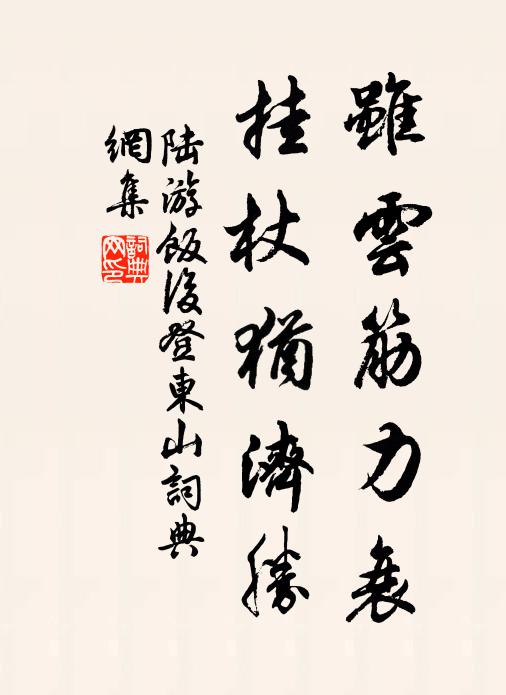 雖雲筋力衰
挂杖猶濟勝
陸游飯後登東山詞典
網集
詞典
网印